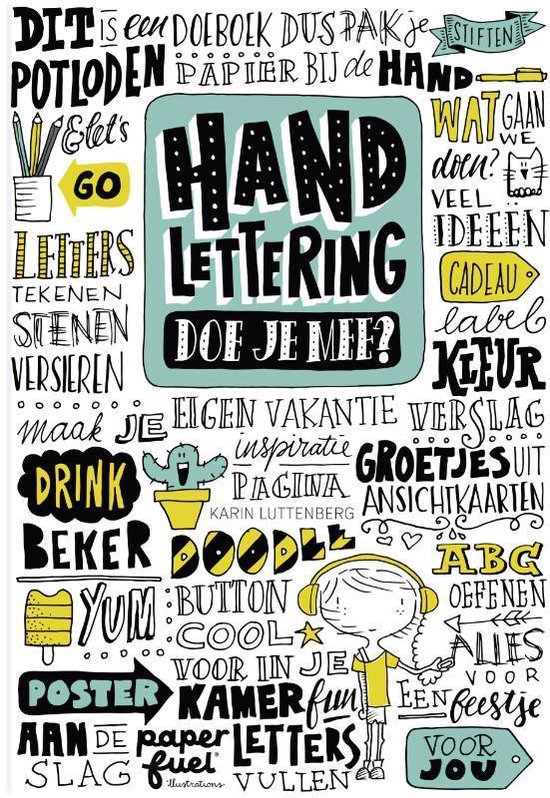 DIT is een DOEBOEK DUS PAK je STIFTEN
POTLODEN PAPIER BIJ de HAND
& let's
GO
WAT GAAN
WE
doen?
VEEL
IDEEËN
HAND
LETTERING
DOE JE MEE?
LETTERS
TEKENEN
STENEN
VERSIEREN
CADEAU
label
KLEUR
maak JE EIGEN VAKANTIE VERSLAG
inspiratie
PAGINA
KARIN LUTTENBERG
GROETJES UIT
ANSICHTKAARTEN
DRINK
BEKER
DOODLE
ABC
OEFENEN
YUM
BUTTON
COOL
ALLES
VOOR
EEN feestje
VOOR IN JE
POSTER KAMER fun
AAN DE paper LETTERS
SLAG fuel VULLEN
illustrations
VOOR
JOU